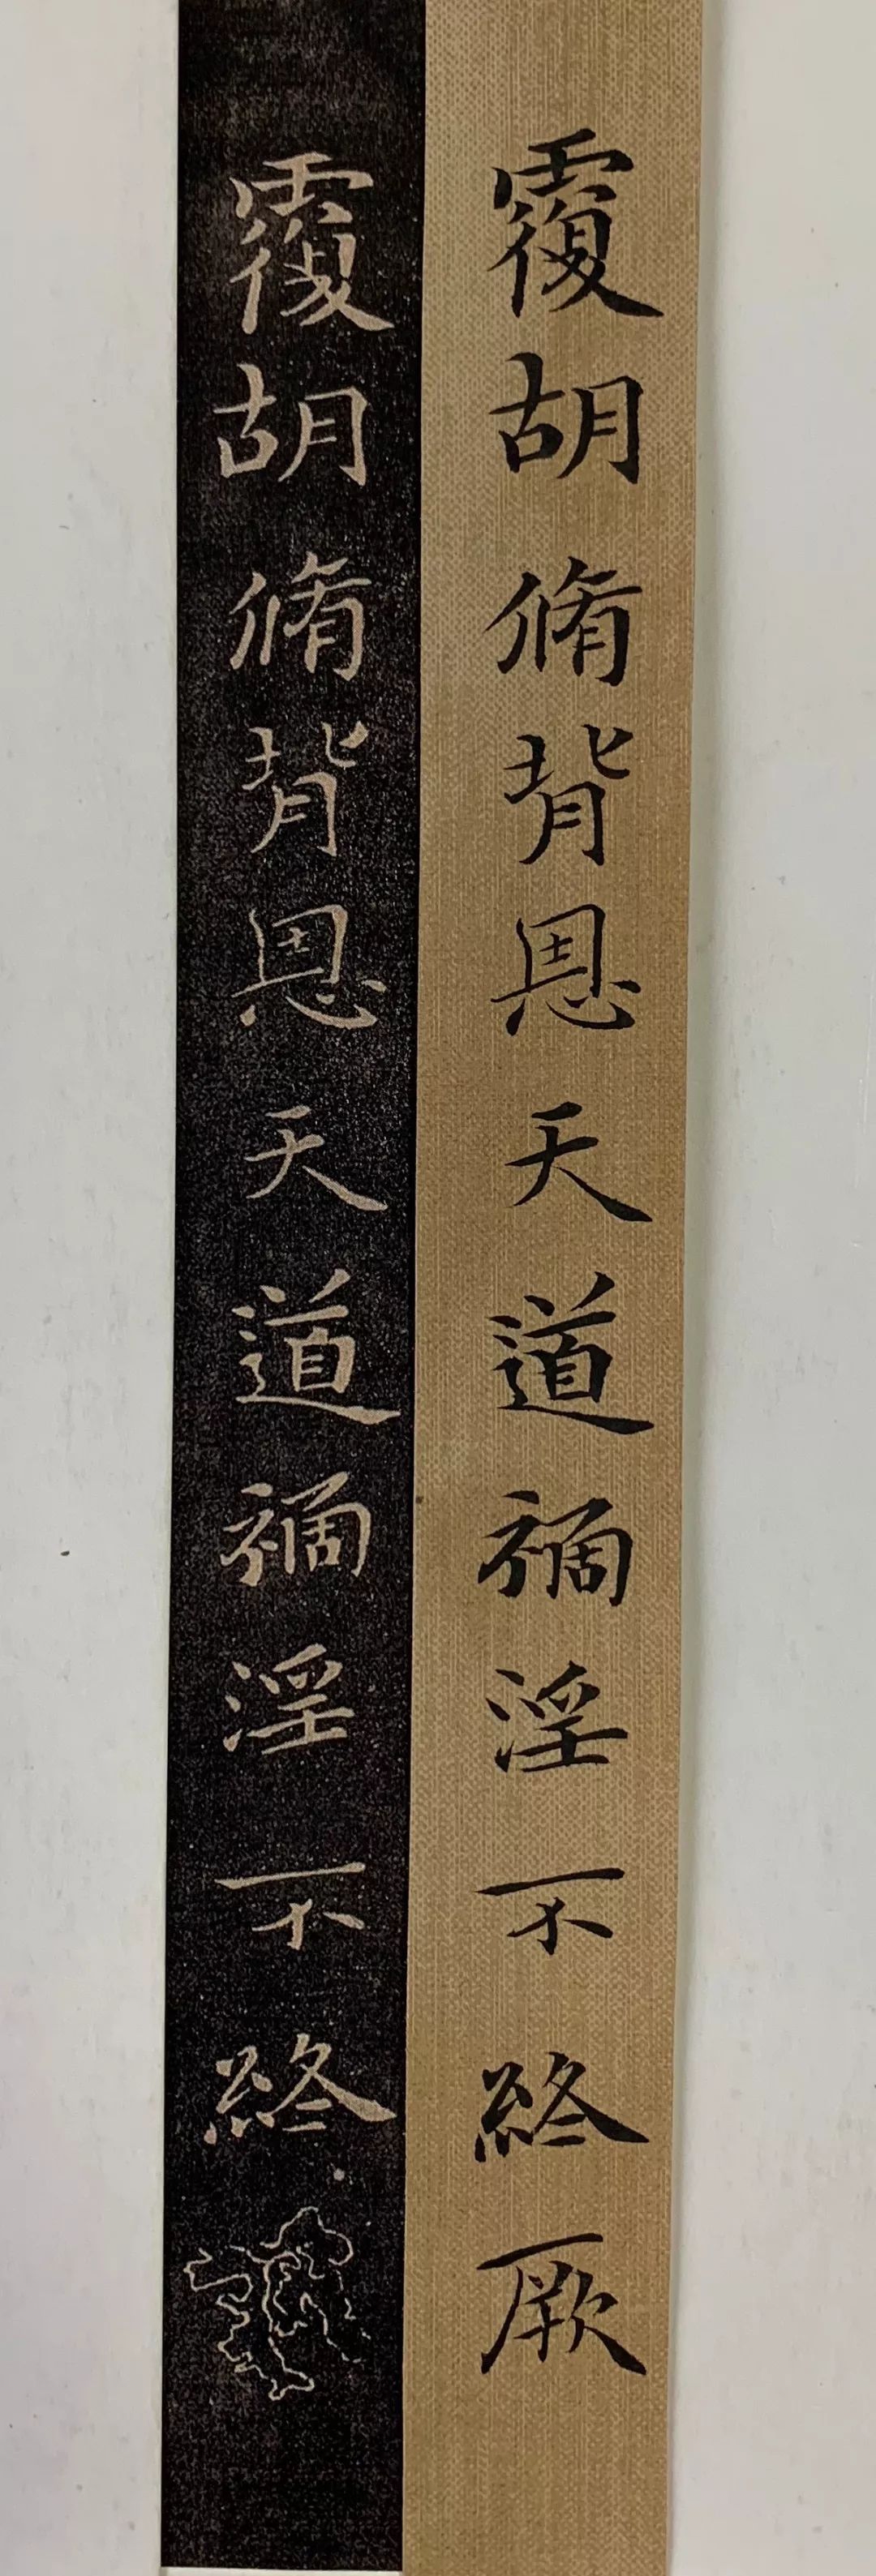 覆胡脩背恩天道禍淫不終厥
覆胡脩背恩天道禍淫不終